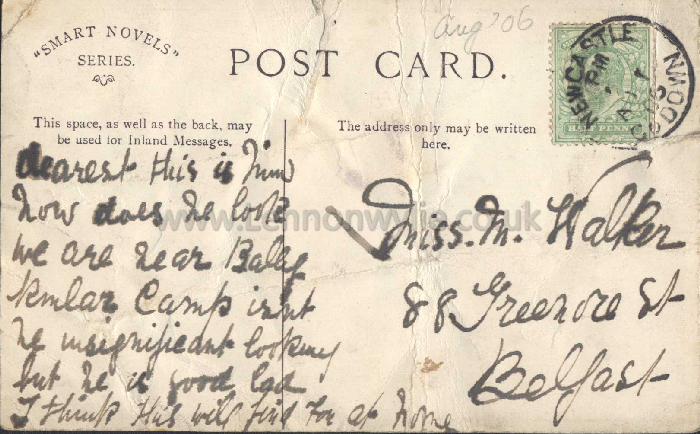 Aug '06
"SMART NOVELS"
SERIES.
POST CARD.
NEWCASTLE
CO DOWN
PM
AU
HALF PENNY
This space, as well as the back, may
be used for Inland Messages.
The address only may be written
here.
dearest this is him
how does he look
we are near Baley
Camp isint
he insignificant looking
but he is good lad
I think this will find you at home
Miss. M. Walker
88 Greenore St
Belfast
www.Lennonwylie.co.uk